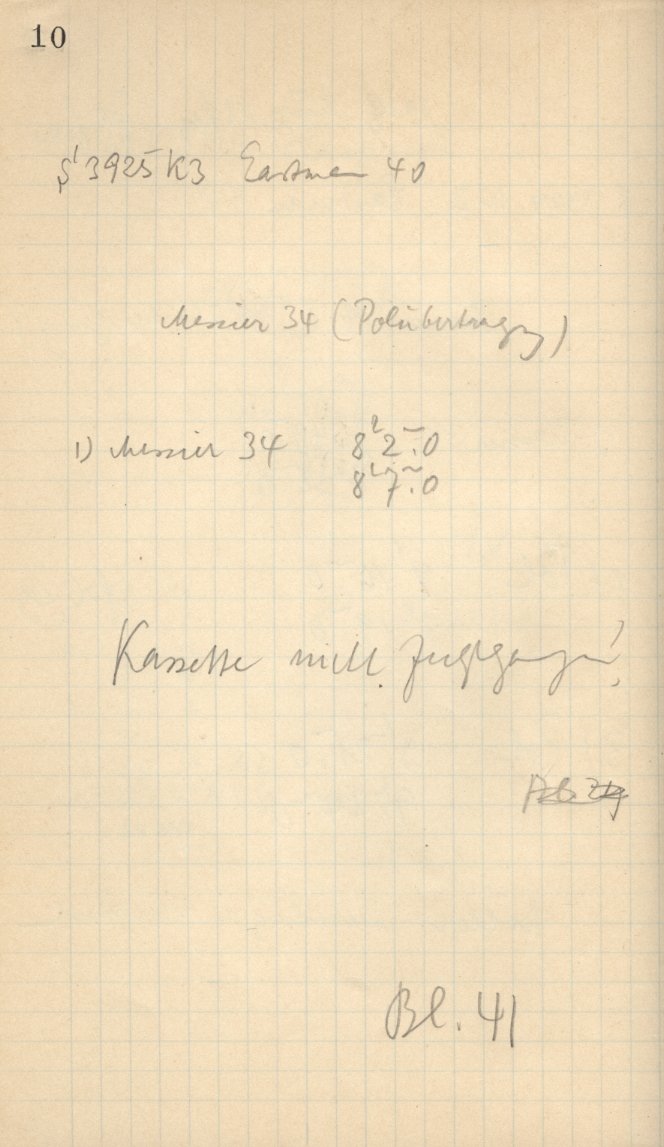 10
3925 K3 Eastman 40
Messier 34 (Polübertragung)
1) Messier 34 8ʰ2ᵐ.0
8ʰ7ᵐ.0
Kassette nicht
Bl. 41